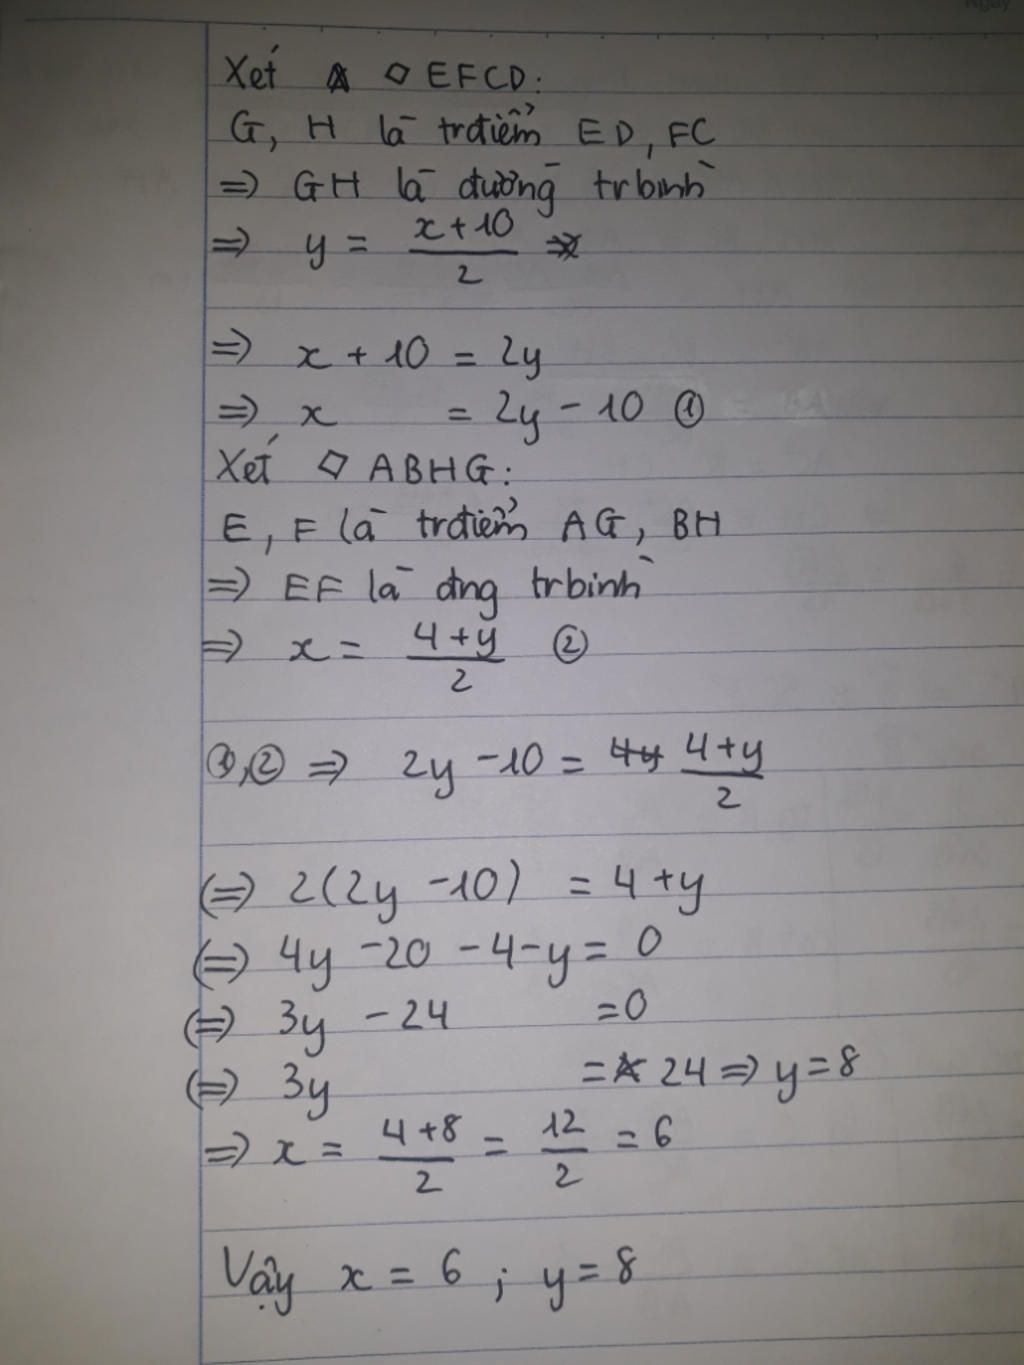 Xét ◇ EFCD:
G, H là trđiểm ED, FC
=> GH là đường trbình
=> y = (x+10)/2
=> x + 10 = 2y
=> x = 2y - 10 ①
Xét ◇ ABHG:
E, F là trđiểm AG, BH
=> EF là đng trbình
=> x = (4+y)/2 ②
①,② => 2y - 10 = 4y (4+y)/2
(=) 2(2y - 10) = 4 + y
(=) 4y - 20 - 4 - y = 0
(=) 3y - 24 = 0
(=) 3y = 24 => y = 8
=> x = (4+8)/2 = 12/2 = 6
Vậy x = 6 ; y = 8